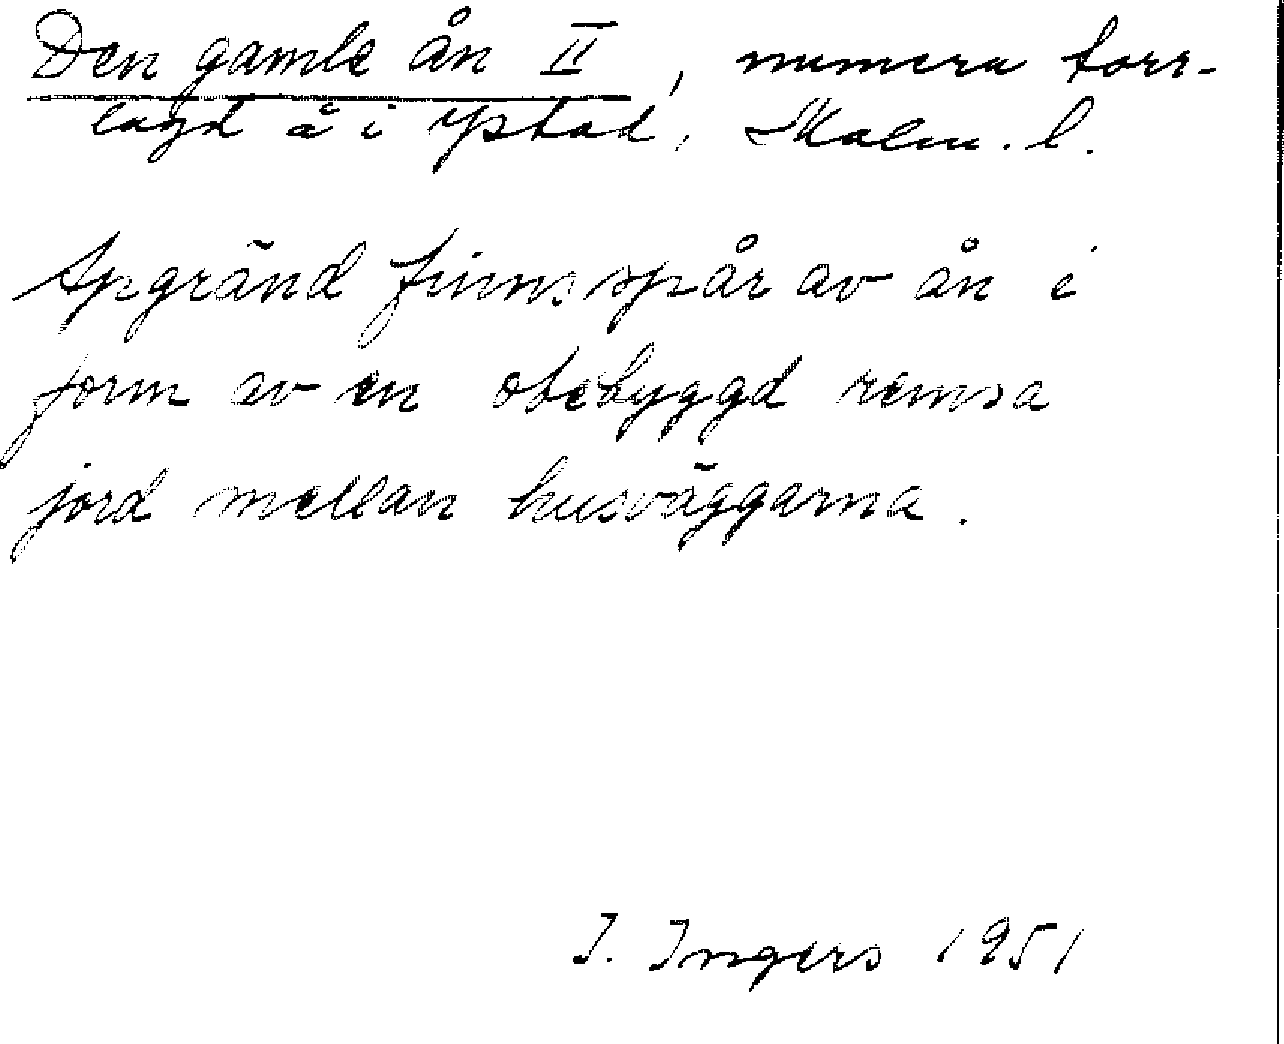 Den gamle ån II, numera torr-
lagd å i Ystad, Malm. l.
Apgränd finns spår av ån i
form av en obebyggd remsa
jord mellan husväggarna.
I. Ingers 1951